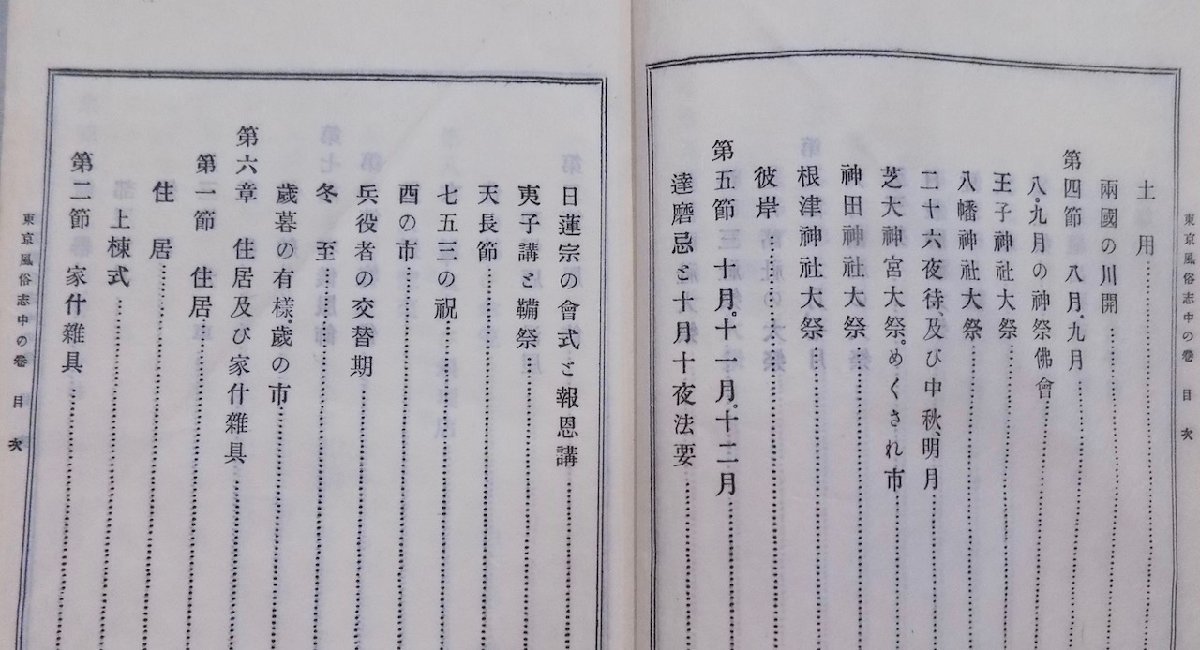 東京風俗志中の卷 目次
土用
兩國の川開
第四節 八月、九月
八、九月の神祭佛會
王子神社大祭
八幡神社大祭
二十六夜待、及び中秋、明月
芝大神宮大祭。めくされ市
神田神社大祭
根津神社大祭
彼岸
第五節 十月。十一月。十二月
達磨忌と十月十夜法要
日蓮宗の會式と報恩講
夷子講と鞴祭
天長節
七五三の祝
酉の市
兵役者の交替期
冬至
歲暮の有樣歲の市
第六章 住居及び家什雜具
第一節 住居
住居
上棟式
第二節 家什雜具
東京風俗志中の卷 目次